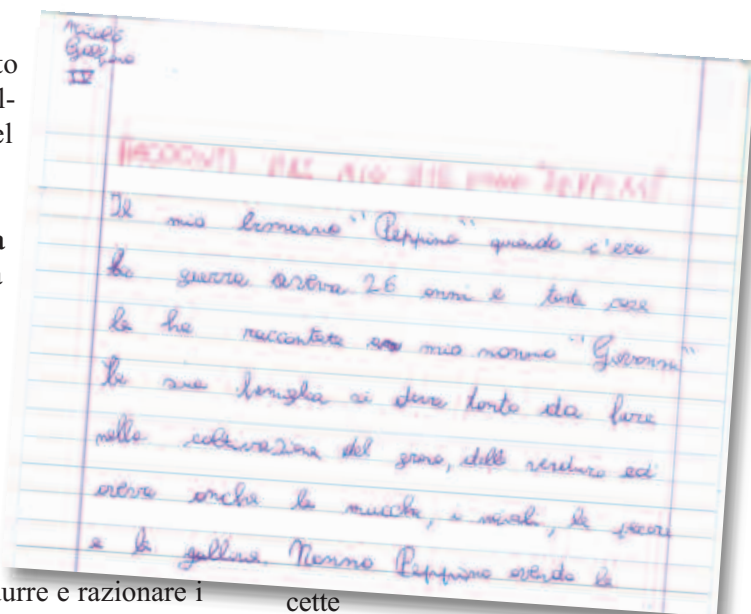 to
l-
el
a
Nicolò
IV
RACCONTI DAL MIO
Il mio bisnonno "Peppino" quando c'era
la guerra aveva 26 anni e tante cose
le ha raccontate mio nonno "Giovanni"
la sua famiglia si dava tanto da fare
nella coltivazione del grano, delle verdure ed
aveva anche le mucche, i maiali, le pecore
e le galline. Nonno Peppino avendo la
urre e razionare i
cette